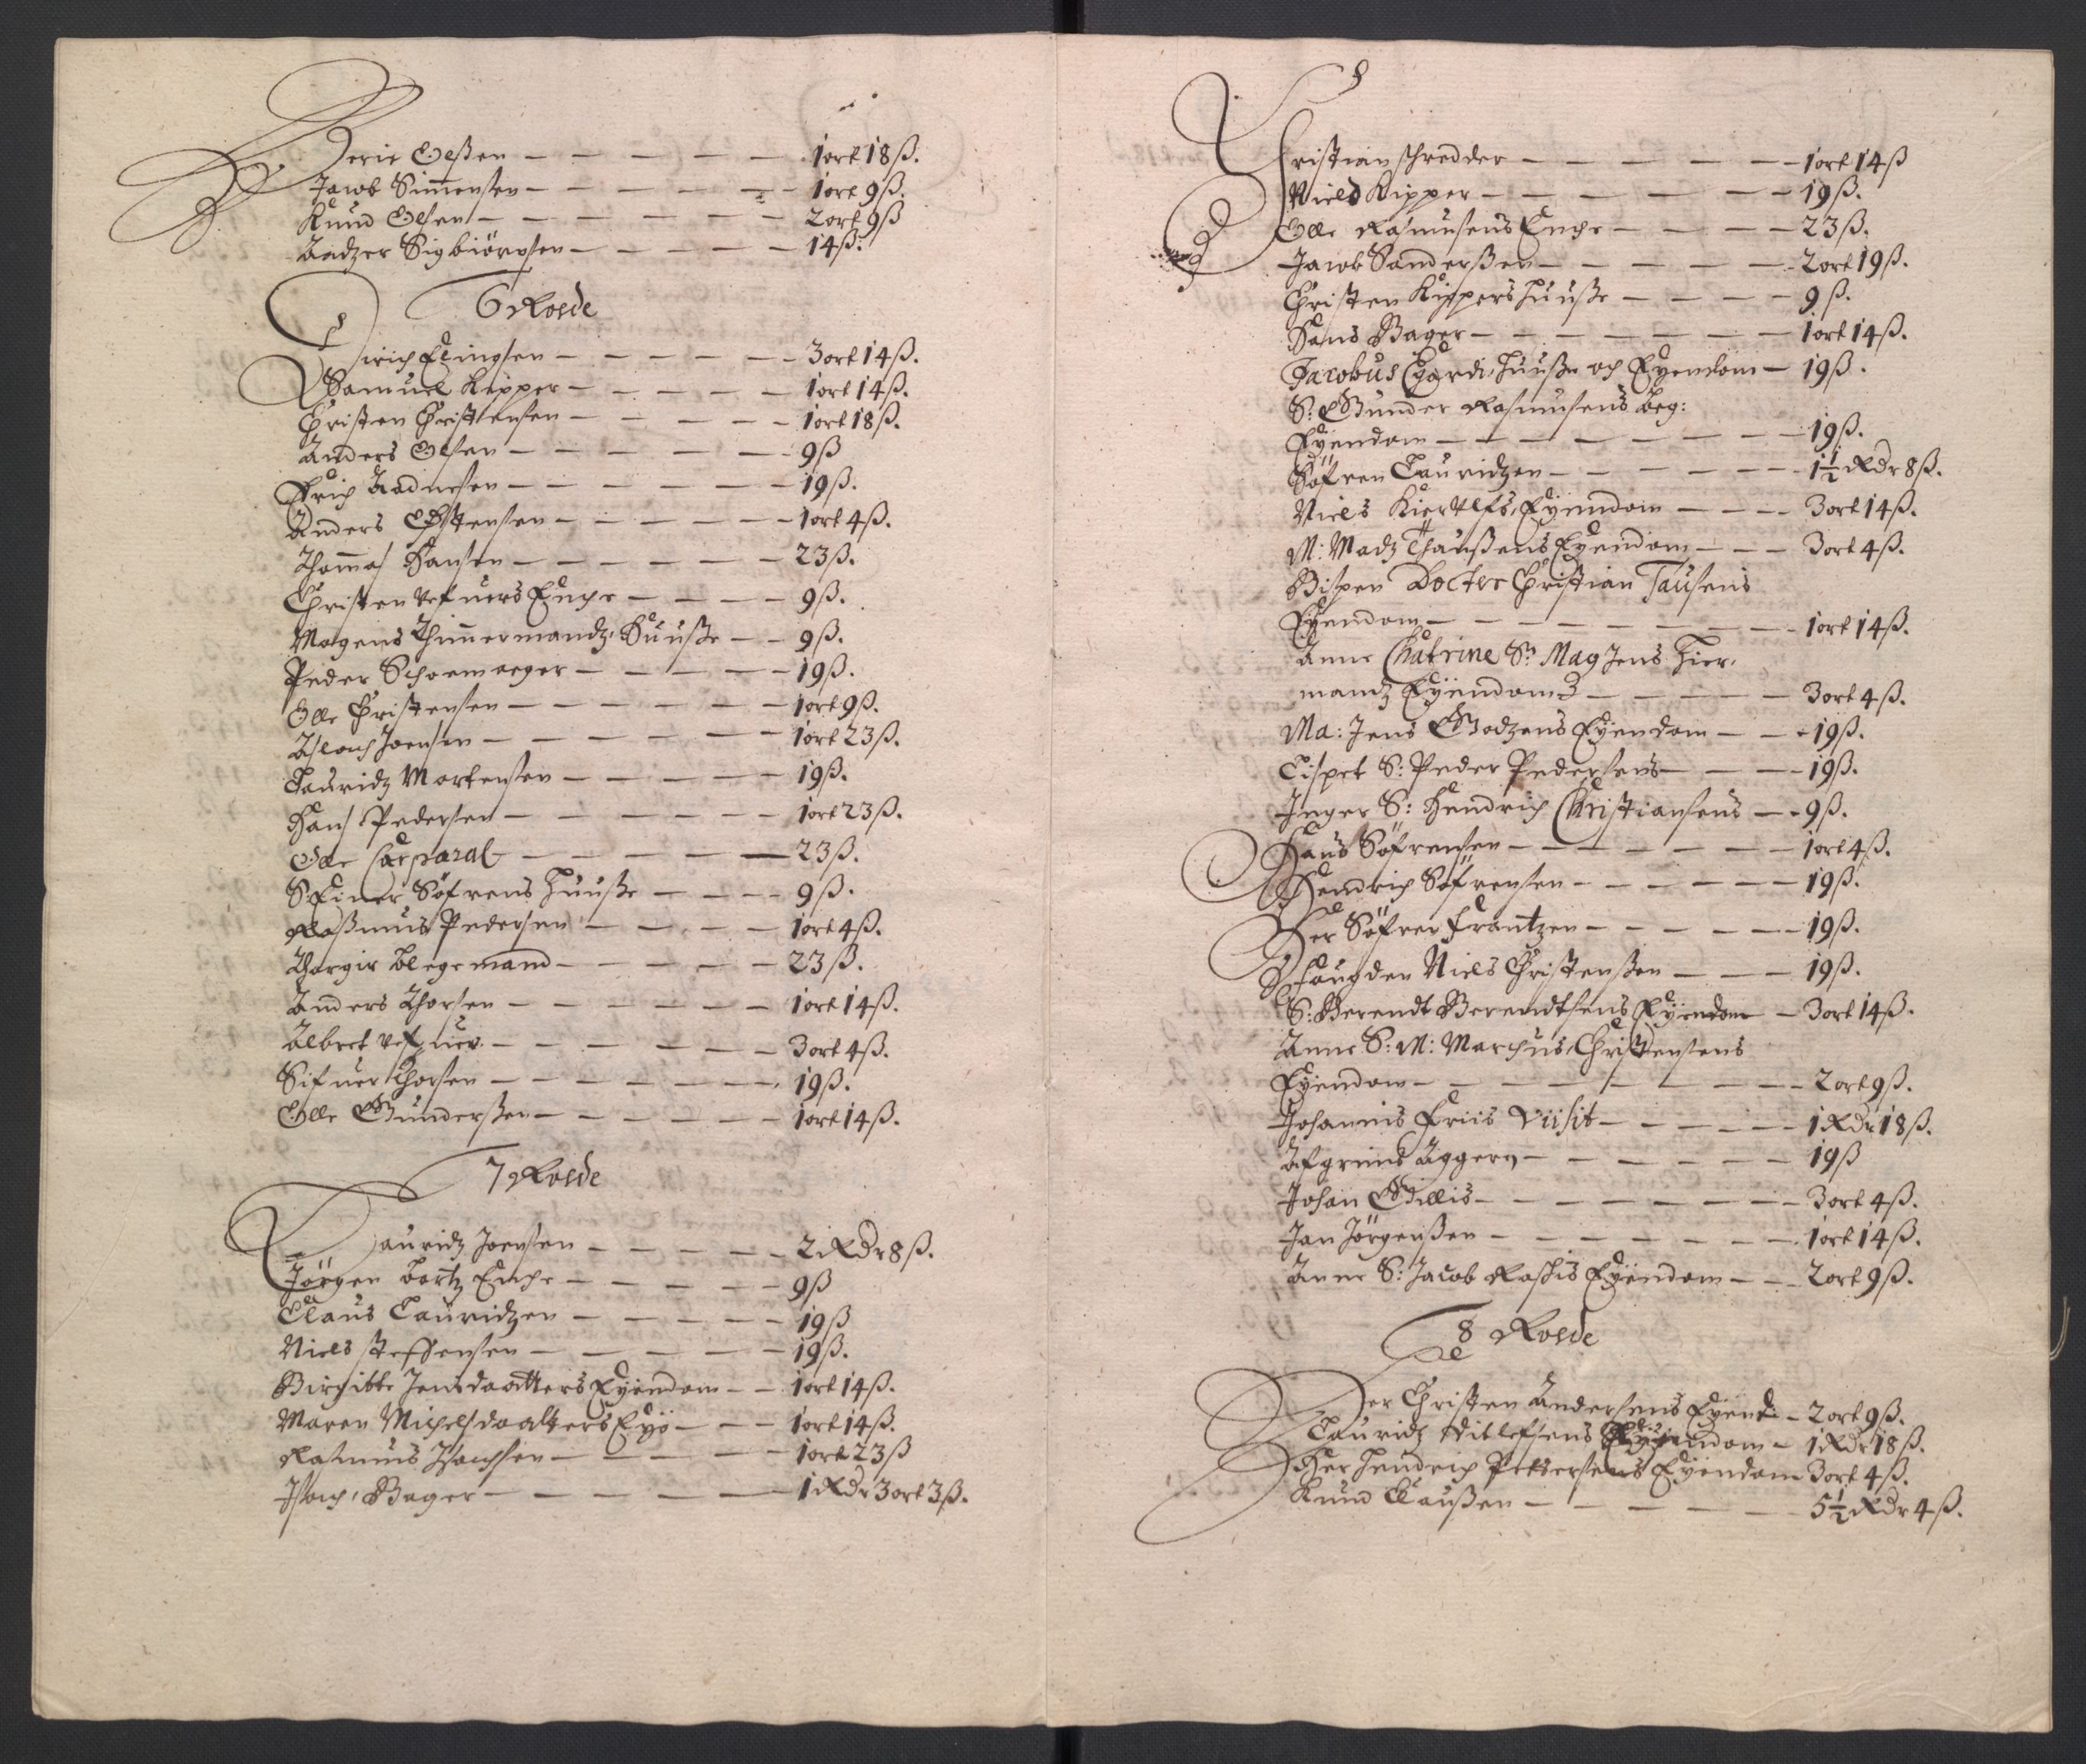 Berie Olßen — 1ort 18ß.
Jacob Simensen — 1ort 9ß.
Knud Olsen — 2ort 9ß
Aadzer Sigbiörnsen — 14ß.
6 Roede
Dirich Elingsen — 3ort 14ß.
Samuel Kipper — 1ort 14ß.
Christen Christensen — 1ort 18ß.
Anders Olsen — 9ß
Erich Aadnesen — 19ß.
Anders Christensen — 1ort 4ß.
Thomas Hansen — 23ß.
Christen Vefuers Enche — 9ß.
Mogens Thimmermandz Huuße — 9ß.
Peder Schoemager — 19ß.
Olle Christensen — 1ort 9ß.
Aslach Joensen — 1ort 23ß.
Lauridz Mortensen — 19ß.
Hans Pedersen — 1ort 23ß.
Olle Corporal — 23ß.
S Einer Söfrens Huuße — 9ß.
Raßmus Pedersen — 1ort 4ß.
Thorgir blegemand — 23ß.
Anders Thorsen — 1ort 14ß.
Albret Vefuer — 3ort 4ß.
Sifuer Thorsen — 19ß.
Olle Gunderßen — 1ort 14ß.
7 Roede
Lauridz Joensen — 2 Rdr 8ß.
Jörgen bartz Enche — 9ß
Claus Lauridzen — 19ß
Niels Steffensen — 19ß.
Birgitte Jensdaatters Eyendom — 1ort 14ß.
Maren Michelsdaatters Eyö — 1ort 14ß.
Rasmus Isachsen — 1ort 23ß
Isach Bager — 1 Rdr 3ort 3ß.
Christian schredder — 1ort 14ß
Niels Kipper — 19ß.
Olle Rasmusens Enche — 23ß.
Jacob Sanderßen — 2ort 19ß.
Christen Kippers Huuße — 9ß.
Hans Bager — 1ort 14ß.
Jacobus Egardi Huuße och Eyendom — 19ß.
S: Gunder Rasmusens beg:
Eyendom — 19ß.
Söfren Lauridzen — 1½ Rdr 8ß.
Niels Kierulfs Eyendom — 3ort 14ß.
M: Madz Thaußens Eyendom — 3ort 4ß.
Bispen Docter Christian Tausens
Eyendom — 1ort 14ß.
Anne Chatrine Sr Mag Jens Hier-
mandz Eyendom — 3ort 4ß.
Ma: Jens Godzens Eyendom — 19ß.
Lispet S: Peder Pedersens — 19ß.
Inger S: Hendrich Christiansens — 9ß.
Hans Söfrensen — 1ort 4ß.
Hendrich Söfrensen — 19ß.
Her Söfren Frantzen — 19ß.
Faugden Niels Christenßen — 19ß.
S: Berendt Berendtsens Eyendom — 3ort 14ß.
Anne S: M: Marchus Christensens
Eyendom — 2ort 9ß.
Johannis Friis Viisit — 1 Rdr 18ß.
Asgrims Aggern — 19ß
Johan Gillis — 3ort 4ß.
Jan Jörgenßen — 1ort 14ß.
Anne S: Jacob Raschis Eyendom — 2ort 9ß.
8 Roede
Her Christen Andersens Eyend: — 2ort 9ß.
Lauridz Ditlefsens Eyendom — 1 Rdr 18ß.
Her Hendrich Pettersens Eyendom 3ort 4ß.
Knud Claußen — 5½ Rdr 4ß.